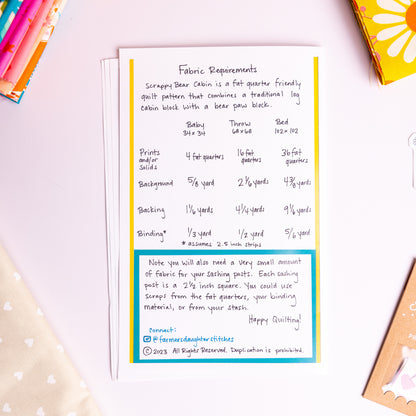 Fabric Requirements
Scrappy Bear Cabin is a fat quarter friendly
quilt pattern that combines a traditional log
cabin block with a bear paw block.
Baby Throw Bed
34x34 68x68 102x102
Prints and/or Solids 4 fat quarters 16 fat quarters 36 fat quarters
Background 5/8 yard 2 1/6 yards 4 3/8 yards
Backing 1 1/6 yards 4 1/4 yards 9 1/6 yards
Binding* 1/3 yard 1/2 yard 5/6 yard
* assumes 2.5 inch strips
Note you will also need a very small amount
of fabric for your sashing posts. Each sashing
post is a 2 1/2 inch square. You could use
scraps from the fat quarters, your binding
material, or from your stash.
Happy Quilting!
Connect:
@farmersdaughterstitches
©2023 All Rights Reserved. Duplication is prohibited.